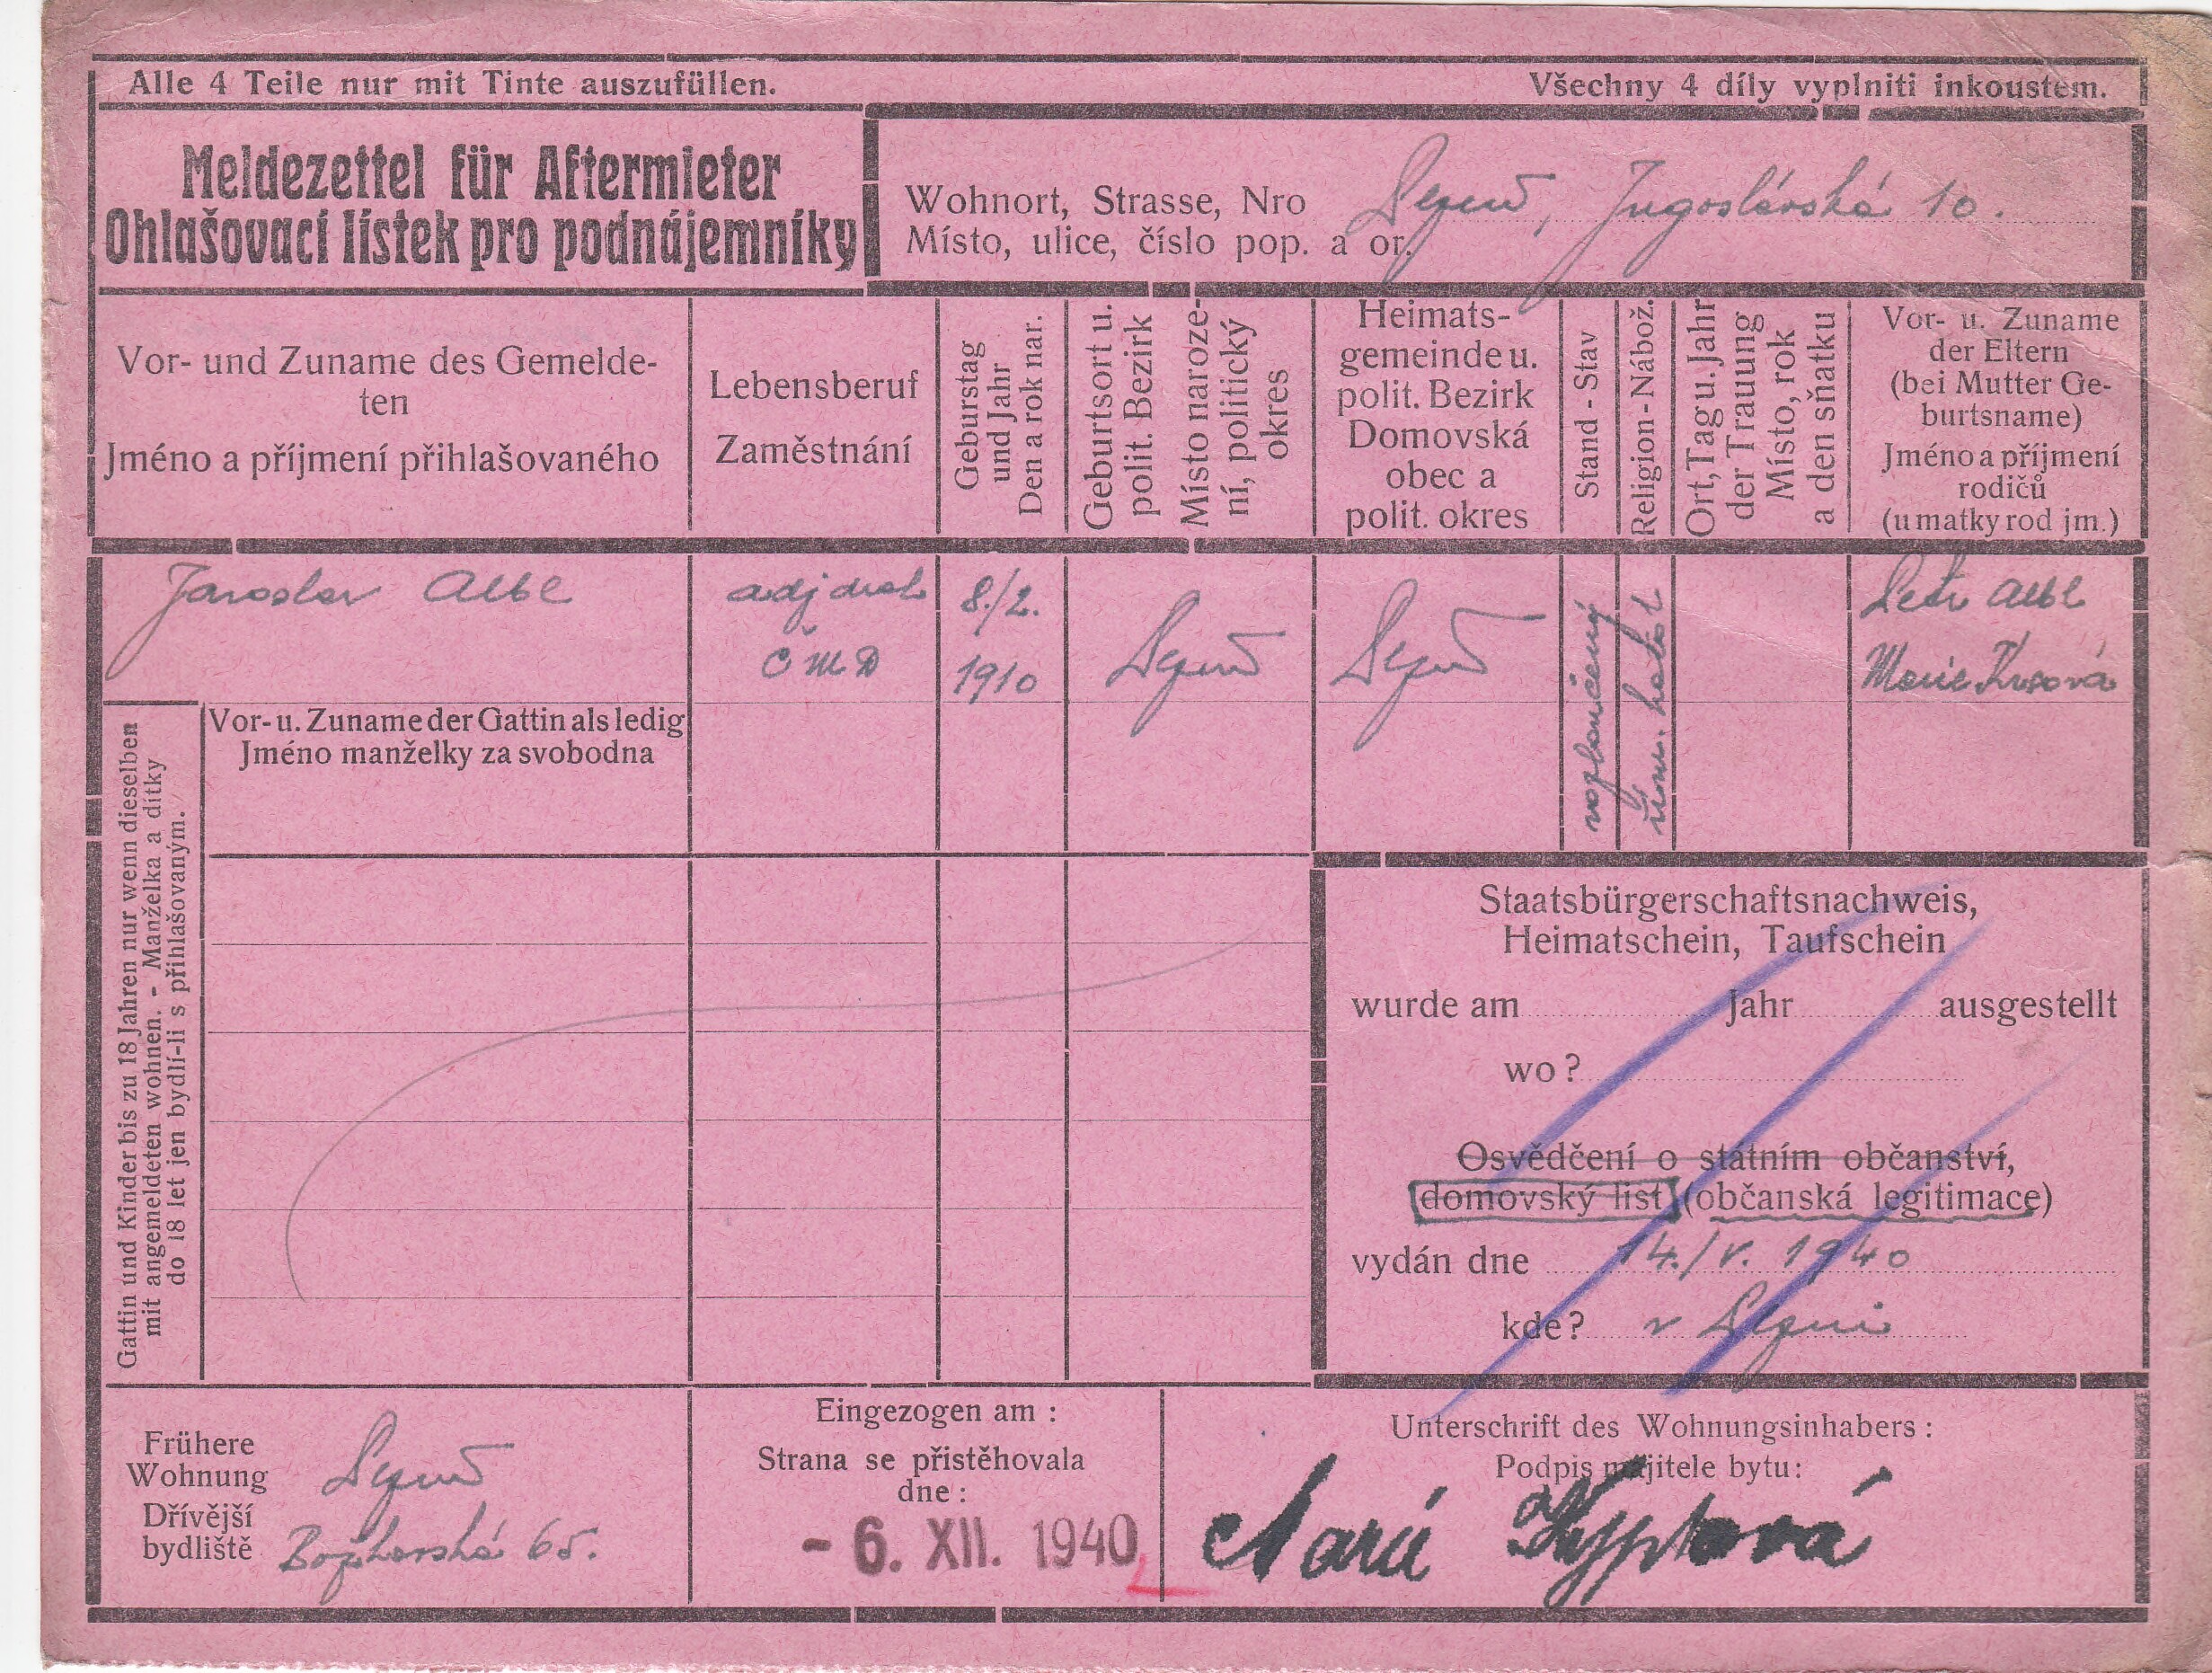 Alle 4 Teile nur mit Tinte auszufüllen.
Všechny 4 díly vyplniti inkoustem.
Meldezettel für Aftermieter
Ohlašovací lístek pro podnájemníky
Wohnort, Strasse, Nro
Místo, ulice, číslo pop. a or.
Jugoslávská 10.
Vor- und Zuname des Gemelde-
ten
Jméno a příjmení přihlašovaného
Lebensberuf
Zaměstnání
Geburstag
und Jahr
Den a rok nar.
Geburtsort u.
polit. Bezirk
Místo naroze-
ní, politický
okres
Heimats-
gemeinde u.
polit. Bezirk
Domovská
obec a
polit. okres
Stand - Stav
Religion - Nábož.
Ort, Tag u. Jahr
der Trauung
Místo, rok
a den sňatku
Vor- u. Zuname
der Eltern
(bei Mutter Ge-
burtsname)
Jméno a příjmení
rodičů
(u matky rod jm.)
Jaroslav Albl
adj
ČMD
8./2.
1910
rozloučený
řím. kato
Petr Albl
Marie
Vor- u. Zuname der Gattin als ledig
Jméno manželky za svobodna
Gattin und Kinder bis zu 18 Jahren nur wenn dieselben
mit angemeldeten wohnen. - Manželka a dítky
do 18 let jen bydlí-li s přihlašovaným.
Staatsbürgerschaftsnachweis,
Heimatschein, Taufschein
wurde am Jahr ausgestellt
wo?
Osvědčení o státním občanství,
domovský list (občanská legitimace)
vydán dne 14./V. 1940
kde? v
Frühere
Wohnung
Dřívější
bydliště
65.
Eingezogen am :
Strana se přistěhovala
dne :
- 6. XII. 1940
Unterschrift des Wohnungsinhabers :
Podpis majitele bytu: